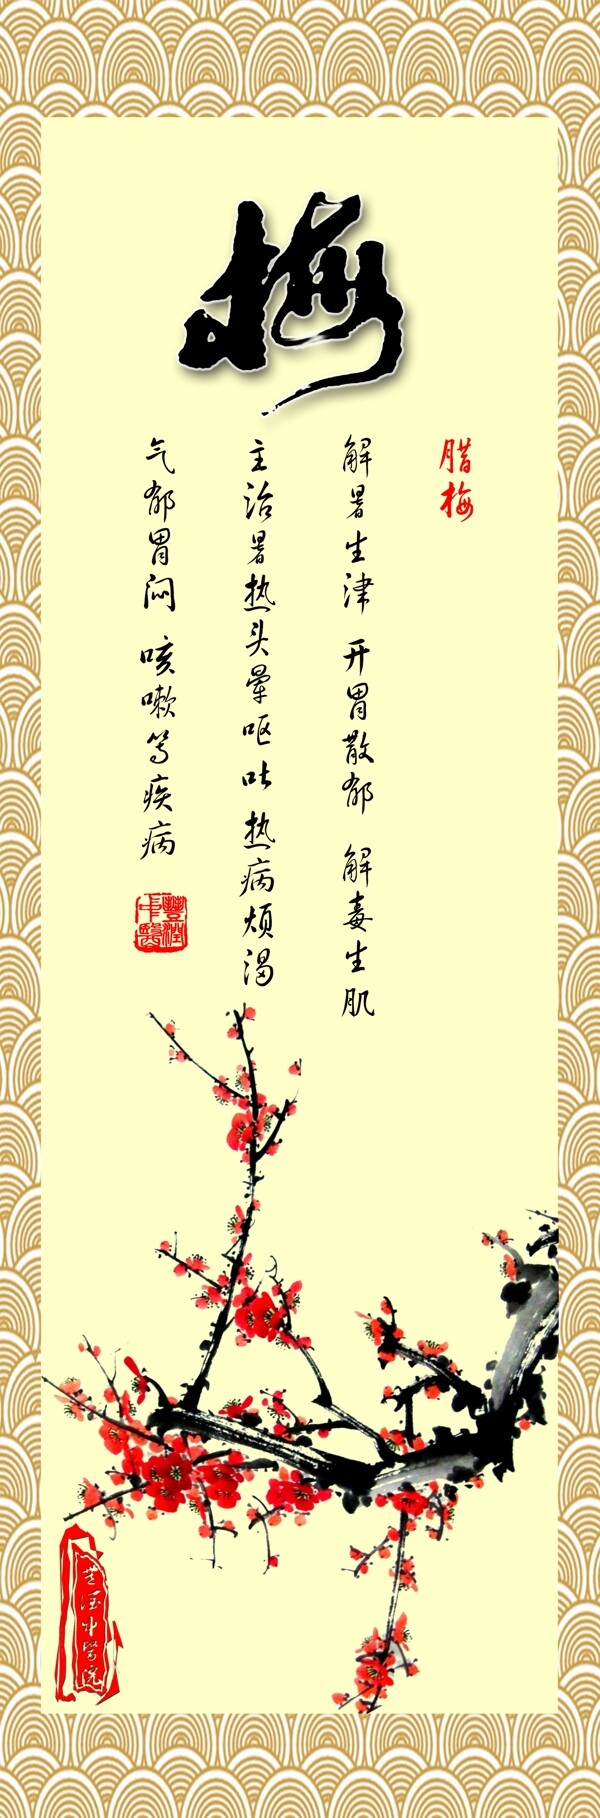 梅
腊梅
解暑生津 开胃散郁 解毒生肌
主治暑热头晕呕吐 热病烦渴
气郁胃闷 咳嗽等疾病
豐润
中醫